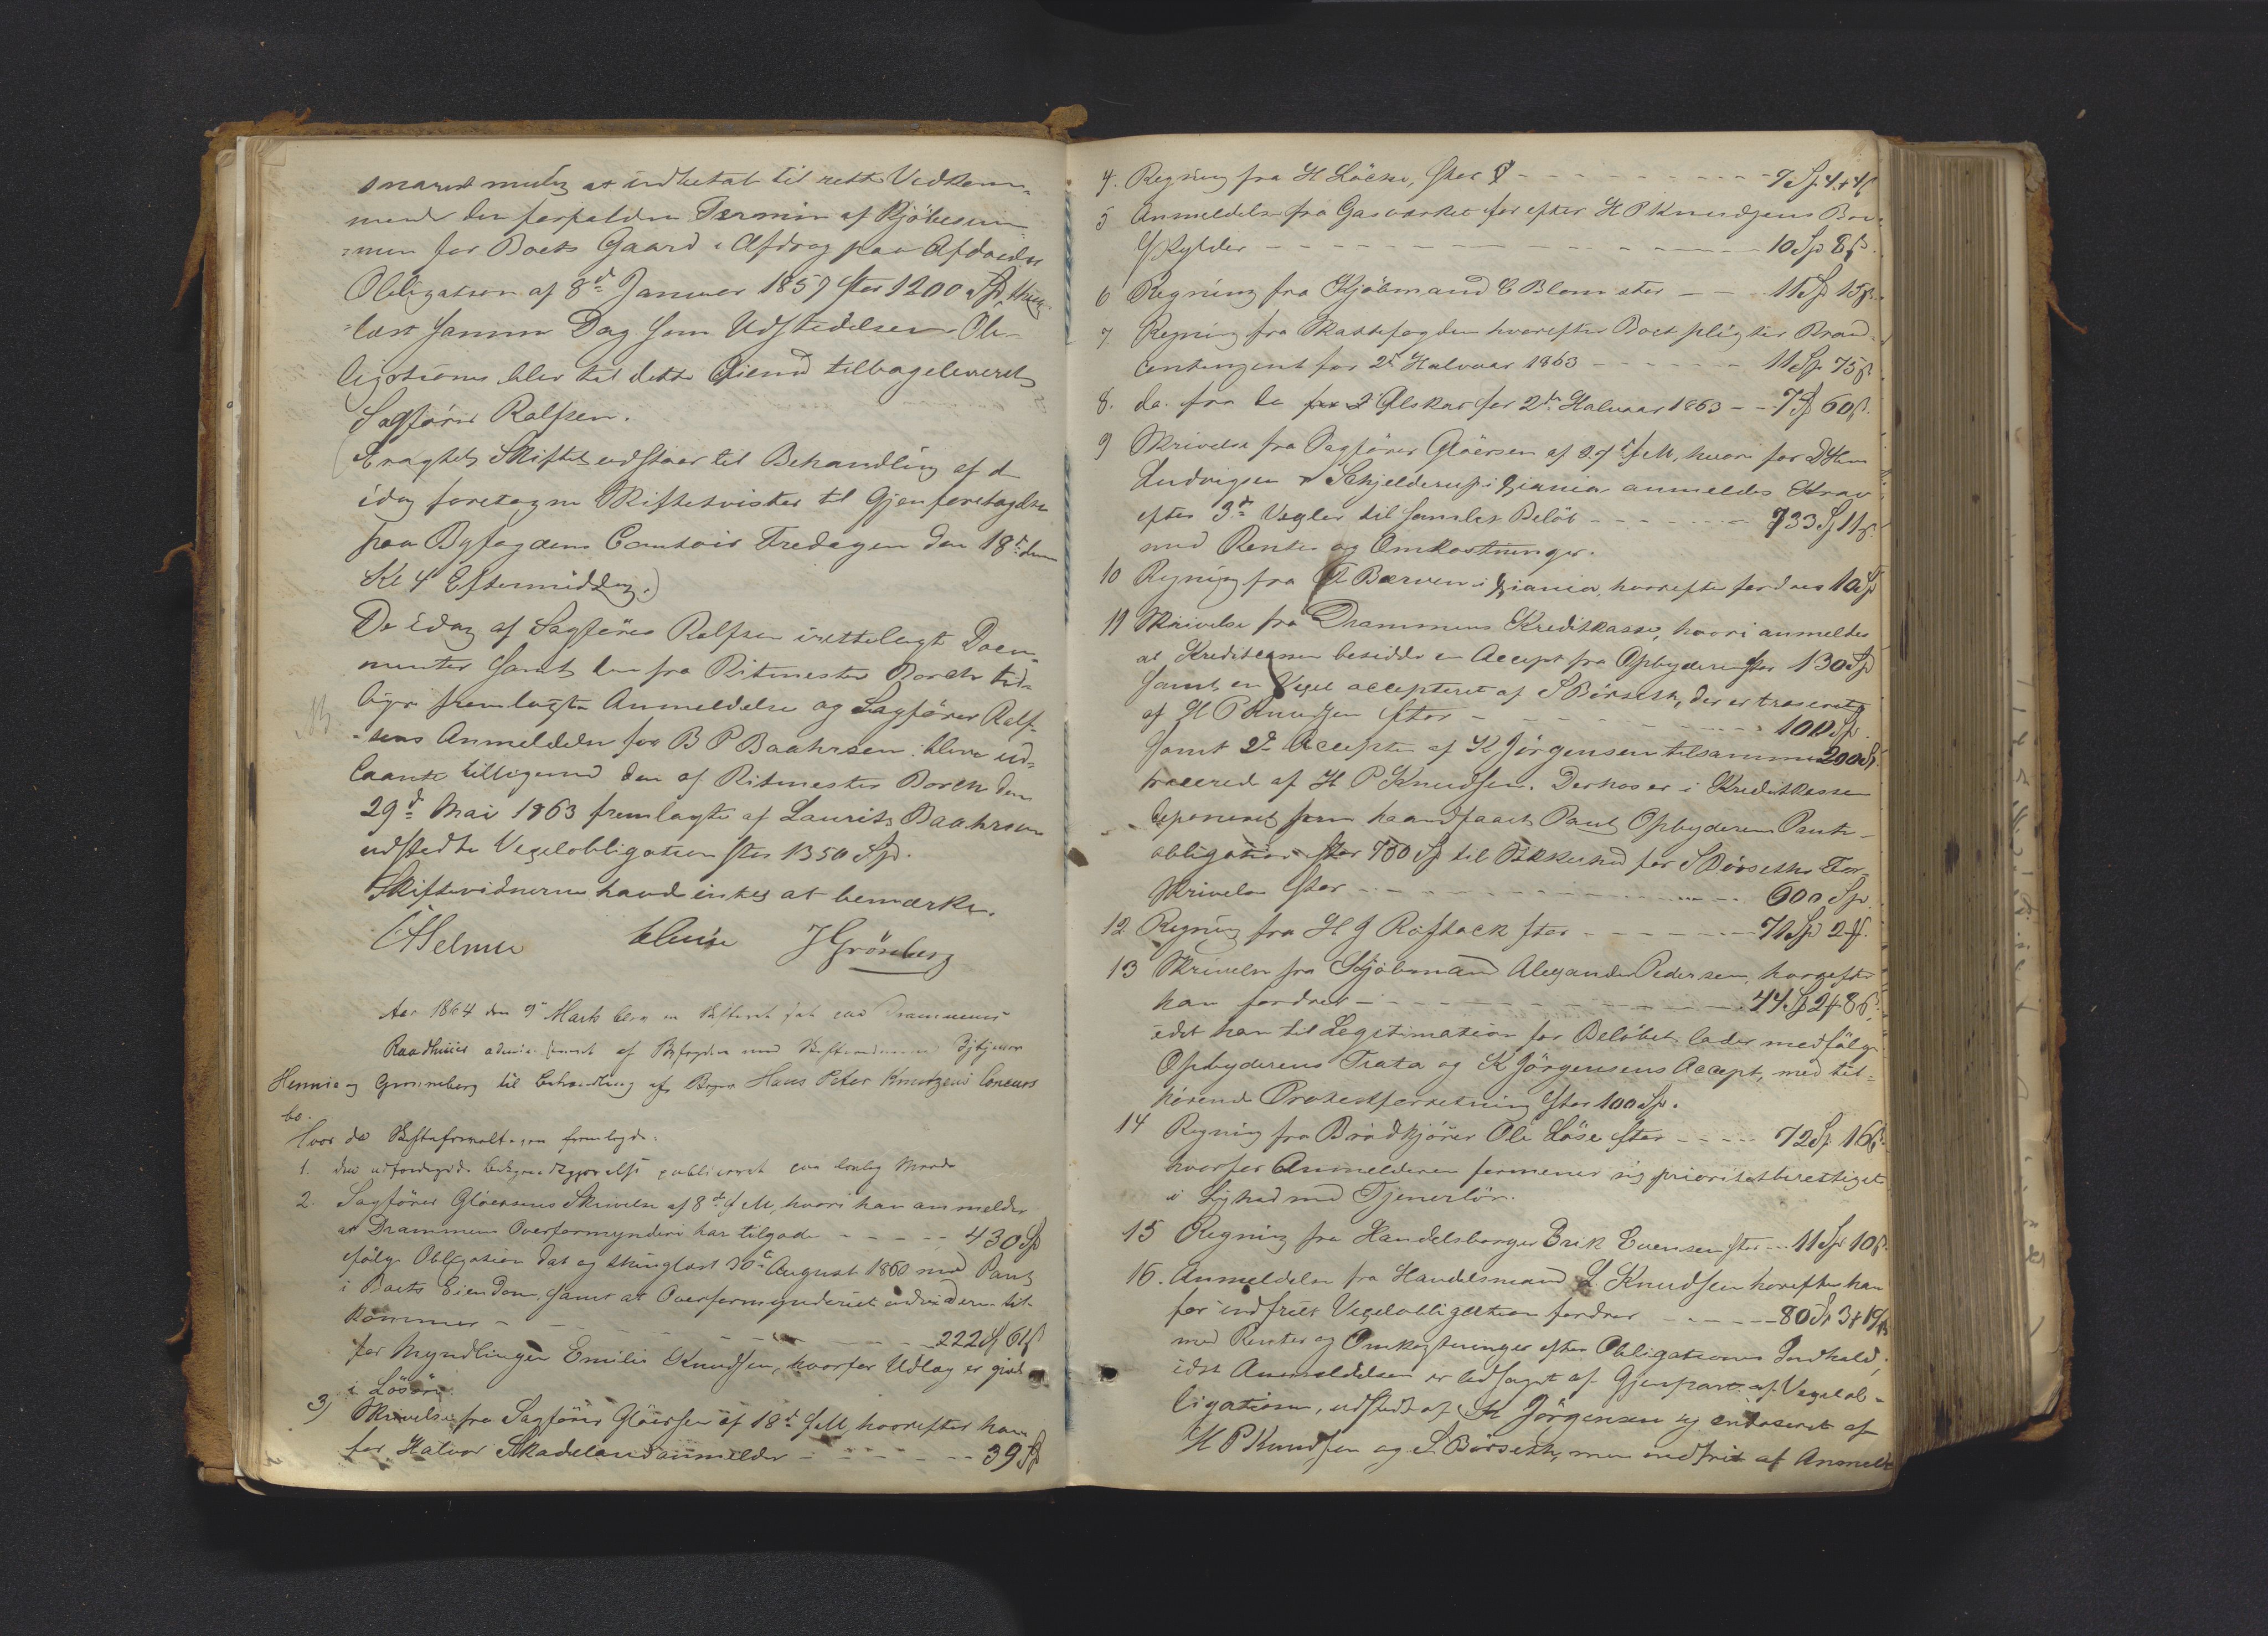 snarest mulig at indbetale til rette Vedkom-
mende den forfaldne Termin af Kjöbesum-
men for Boets Gaard i Afdrag paa Afdödes
Obligation af 8de Januar 1857 stor 1200 Spd, thing-
læst samme Dag som Udstedelsen. Ob-
ligationen blev til dette Öiemed tilbageleveret
Sagförer Rolfsen.
Eragtet Skiftet udstaar til Behandling af de
idag foretagne Skiftetvister til Gjenforetagelse
paa Byfogdens Contoir Fredagen den 18de dennes
Kl 4 Eftermiddag.)
De idag af Sagförer Rolfsen irettelagte Docu-
menter samt den fra Ritmester Borch tid-
ligere fremlagte Anmeldelse og Sagförer Rolf-
sens Anmeldelse for B P Baahrsen bleve ud-
laante tilligemed den af Ritmester Borch den
29de Mai 1863 fremlagte af Laurits Baahrsen
udstedte Vexelobligation stor 1350 Spd.
Skiftevidnerne havde intet at bemærke.
Hennie J Grönberg
Aar 1864 den 9de Marts blev en Skifteret sat paa Drammens
Raadhuus administreret af Byfogden med Skiftevidnerne
Hennie og Grønneberg til Behandling af Borger Hans Peter Knudtzens Concurs
bo.
Hvor da Skifteforvalteren fremlagde:
1. den udfærdigede Bekjendtgjørelse publiceret paa lovlig Maade
2. Sagförer Glöersens Skrivelse af 8de f M, hvori han anmelder
at Drammens Overformynderi har tilgode - - - - - 430 Sp
ifølge Obligation dat og thinglæst 30te August 1860 med Pant
i Boets Eiendom, samt at Overformynderiet endvidere til-
kommer - - - - - - - - - 222 Sp 61 ß
for Myndlingen Emilie Knudsen, hvorfor Udlæg er gjort
i Lösöre
3) Skrivelse fra Sagförer Glöersen af 18de f M, hvorefter han
for Halvor Skadeland anmelder - - - - - - 39 Sp
4. Regning fra H Löcke, stor - - - - - - - - 7 Sp 4 ... 4 ß
5 Anmeldelse fra Gasværket for efter H P Knudzens Bo
skylder - - - - - - - - - - 10 Sp 8 ß.
6 Regning fra Kjöbmand C Blom stor - - 11 Sp 15 ß.
7. Regning fra Skattefogden hvorefter Boet pligter Brand-
contingent for 2det Halvaar 1863 - - - - - 11 Sp 75 ß.
8. do. fra do for Byskat for 2det Halvaar 1863 - - 7 Sp 60 ß.
9 Skrivelse fra Sagförer Glöersen af 29de f M, hvori for D'Hrr
Ludvigsen & Schjelderup i Xiania anmeldes Krav
efter 3de Vexler til samlet Belöb - - - - - - 733 Sp 11 ß.
med Renter og Omkostninger.
10 Regning fra Bærven i Xiania, hvorefter fordres 10 Sp
11 Skrivelse fra Drammens Kreditkasse, hvori anmeldes
at Kreditkassen besidder en Accept fra Opbyderen stor 130 Sp
samt en Vexel accepteret af S Börseth, der er trasseret
af H P Knudsen stor - - - - - - - - - 100 Sp.
samt 2de Accepter af K Jörgensen tilsammen 200 Sp
trasseret af H P Knudsen. Derhos er i Kreditkassen
deponeret som haandfaaet Pant Opbyderens Pante-
obligation stor 700 Sp til Sikkerhed for S Börseths For-
skrivelse stor - - - - - - - - - - - - 600 Sp.
12 Regning fra H J Röfsack stor - - - - - - 71 Sp 2 ß.
13 Skrivelse fra Kjöbmand Alexander Pedersen, hvorefter
han fordrer - - - - - - - - - - 44 Sp 2 ... 8 ß.
idet han til Legitimation for Belöbet lader medfölge
Opbyderens Trata og K Jörgensens Accept, med til-
hörende Protestforretning stor 100 Sp.
14 Regning fra Brödkjörer Ole Löse stor - - - - 72 Sp 16 ß.
hvorfor Anmelderen formener sig prioritetberettiget
i Lighed med Tjenerlön.
15 Regning fra Handelsborger Erik Evensen stor - - 11 Sp 10 ß.
16. Anmeldelse fra Handelsmand L. Knudsen hvorefter han
for indfriet Vexelobligation fordrer - - - - - 80 Sp 3 ... 19 ß
med Renter og Omkostninger efter Obligationens Indhold,
idet Anmeldelsen er ledsaget af Gjenpart af Vexelob-
ligationen, udstedt af K Jörgensen og endosseret af
H P Knudsen og S. Börseth, men indfriet af Anmeld